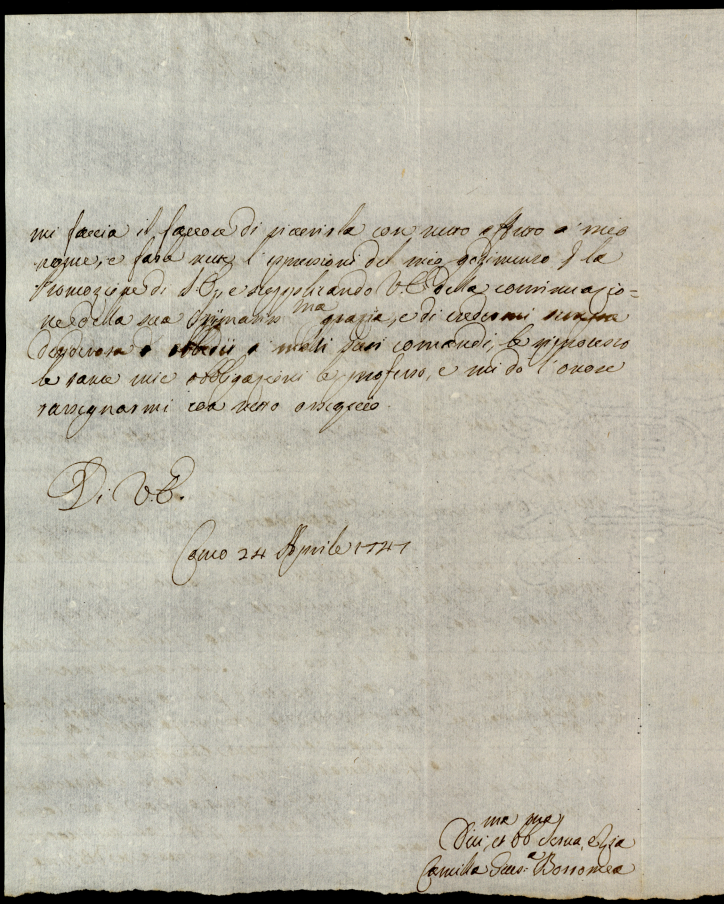 mi faccia il favore di riverirla con tutto affetto a mio
nome, e farle tutte l'espressioni del mio godimento p la
Promozione di S. E., e supplicando V.E. della continuazio=
ne della sua stimatis.ma grazia, e di credermi
desiderosa a molti suoi comandi, le
le tante mie obbligazioni le professo, e mi do l'onore
rassegnarmi con tutto ossequio.
Di V.E.
24 Aprile 1741
Div.ma et Obb.ma Serua, e Zia
Camilla Borromea